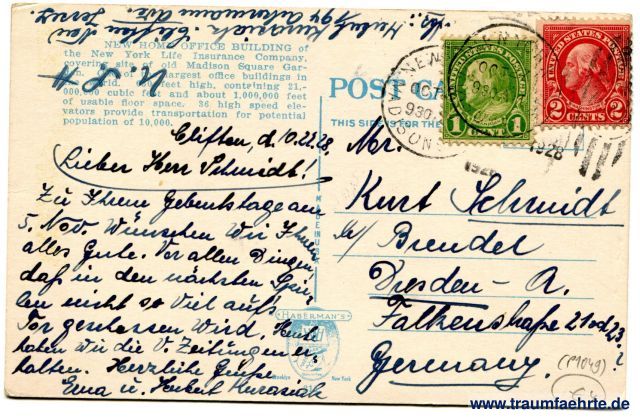 Clifton New
Jersey
NEW HOME OFFICE BUILDING of
the New York Life Insurance Company,
covering site of old Madison Square Gar-
largest office buildings in
feet high, containing 21,-
000,000 cubic feet and about 1,000,000 feet
of usable floor space. 36 high speed ele-
vators provide transportation for potential
population of 10,000.
U. S. A.
POST CARD
THIS SIDE IS FOR
NEW
930
MADISON
1928
UNITED STATES POSTAGE
1 CENT 1
UNITED STATES POSTAGE
2 CENTS 2
Cliften, d. 10.22.28
Lieber Herr Schmidt!
Zu Ihrem Geburtstage am
5. Nov. wünschen wir Ihnen
alles Gute. Vor allen Dingen
daß in den nächsten Spie-
len nicht so viel aufs
Tor geschossen wird. Heute
haben wir die V. Zeitungen er-
halten. Herzliche Grüße
Erna u. Herbert
Mr.
Kurt Schmidt
b/ Brendel
Dresden - A.
Falkenstraße 21 od 23?
Germany.
HABERMAN'S
Brooklyn New York
(P1049)
www.traumfaehrte.de